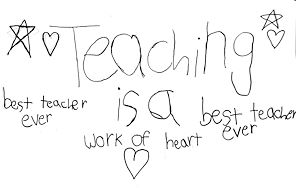 Teaching
is a
work of heart
best teacher
ever
best teacher
ever